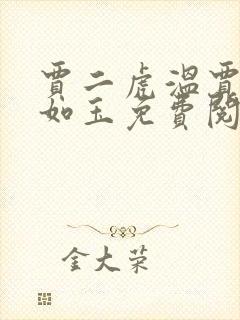 賈二虎溫賈
如玉免費閱
金大荣